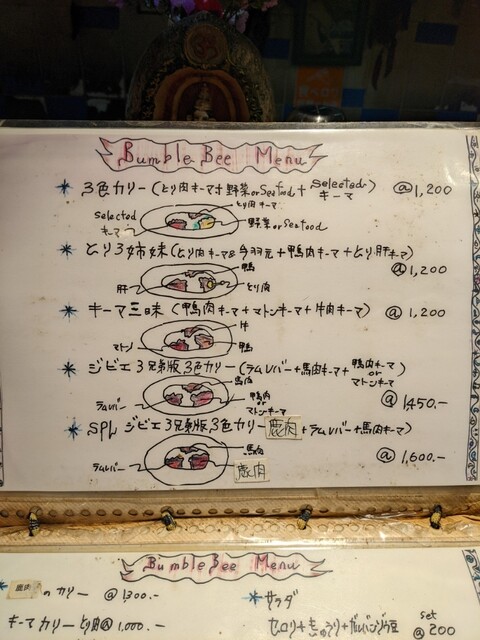 Bumble Bee Menu
3色カリー (とり肉キーマ+野菜orSeafood+Selectedキーマ) @1,200
とり肉キーマ
Selectedキーマ
野菜orSeafood
とり3姉妹 (とり肉キーマ&今羽元+鴨肉キーマ+とり肝キーマ) @1,200
鴨
肝
とり肉
キーマ三昧 (鴨肉キーマ+マトンキーマ+牛肉キーマ) @1,200
牛
マトン
鴨
ジビエ3兄弟版3色カリー (ラムレバー+馬肉キーマ+鴨肉キーマorマトンキーマ) @1450.-
馬肉
ラムレバー
鴨肉orマトンキーマ
SPL ジビエ3兄弟版3色カリー 鹿肉+ラムレバー+馬肉キーマ) @1,600.-
馬肉
ラムレバー
鹿肉
Bumble Bee Menu
鹿肉のカリー @1300.-
キーマカリーとり肉@1,000.-
サラダ
セロリ+きゅうり+ガルバンゾ豆 set @200